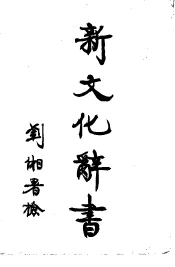 新文化辭書
劉湘署檢